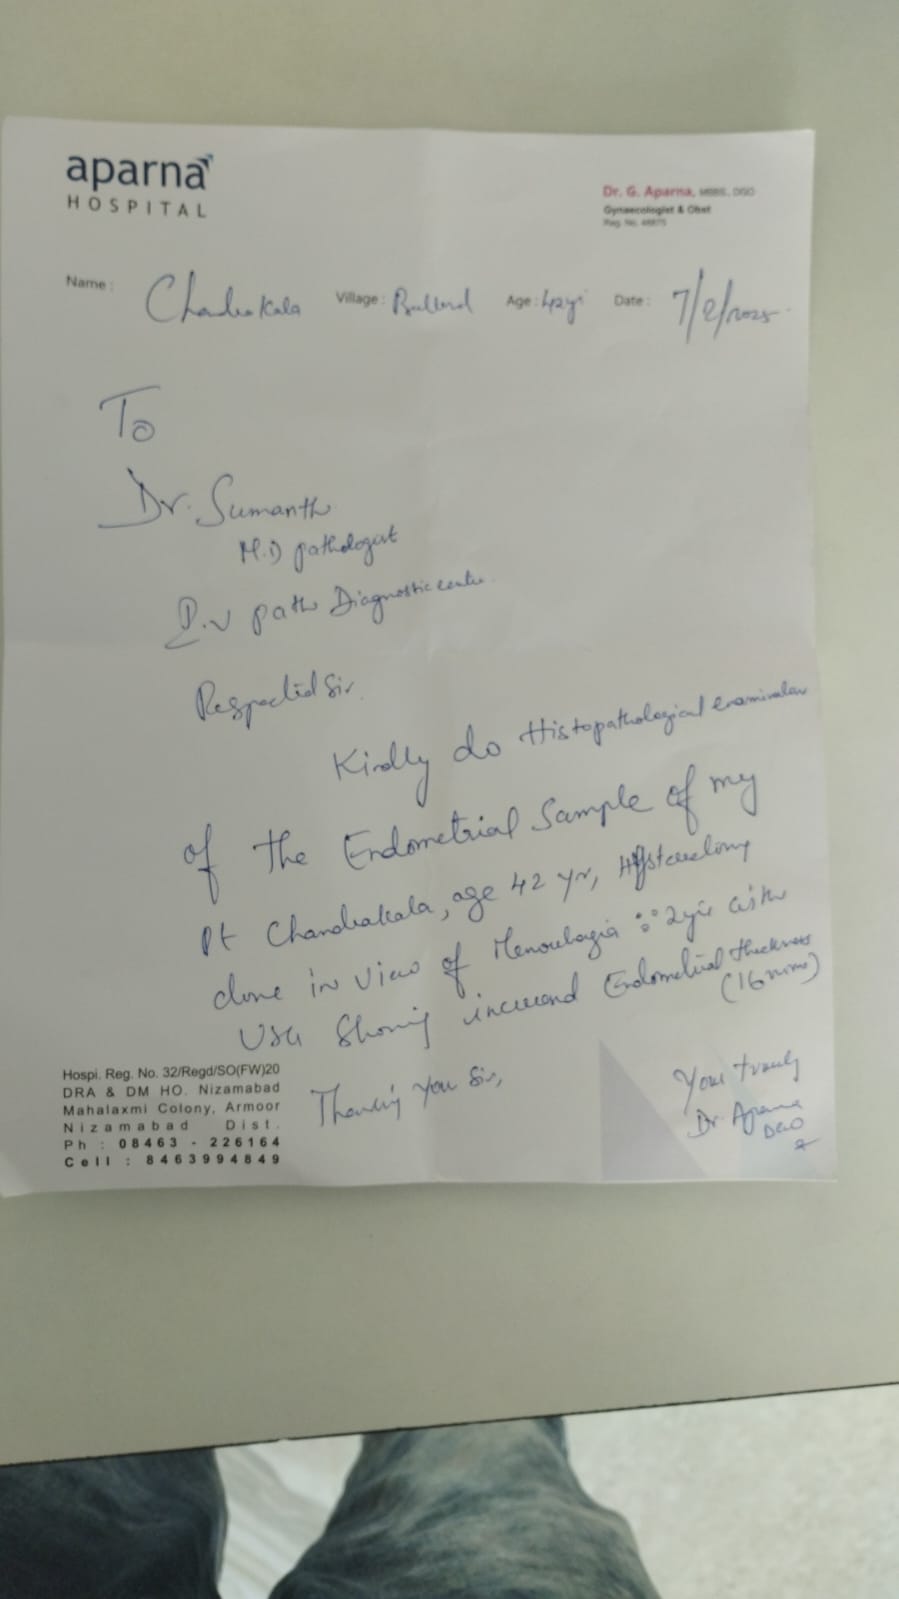 aparna
HOSPITAL
Dr. G. Aparna, MBBS, DGO
Gynaecologist & Obst
Reg. No. 48875
Name : Chandrakala Village : Age : 42yr Date : 7/2/2025
To
Dr. Sumanth
M.D pathologist
P.V path Diagnostic centre.
Respected Sir.
Kindly do Histopathological examination
of the Endometrial Sample of my
Pt Chandrakala, age 42 yr, Hysterectomy
done in view of Menorrhagia 2yrs with
USG Showing increased Endometrial thickness
(16mm)
Thanking You Sir,
Your truely
Dr Aparna
DGO
Hospi. Reg. No. 32/Regd/SO(FW)20
DRA & DM HO. Nizamabad
Mahalaxmi Colony, Armoor
Nizamabad Dist.
Ph : 08463 - 226164
Cell : 8463994849